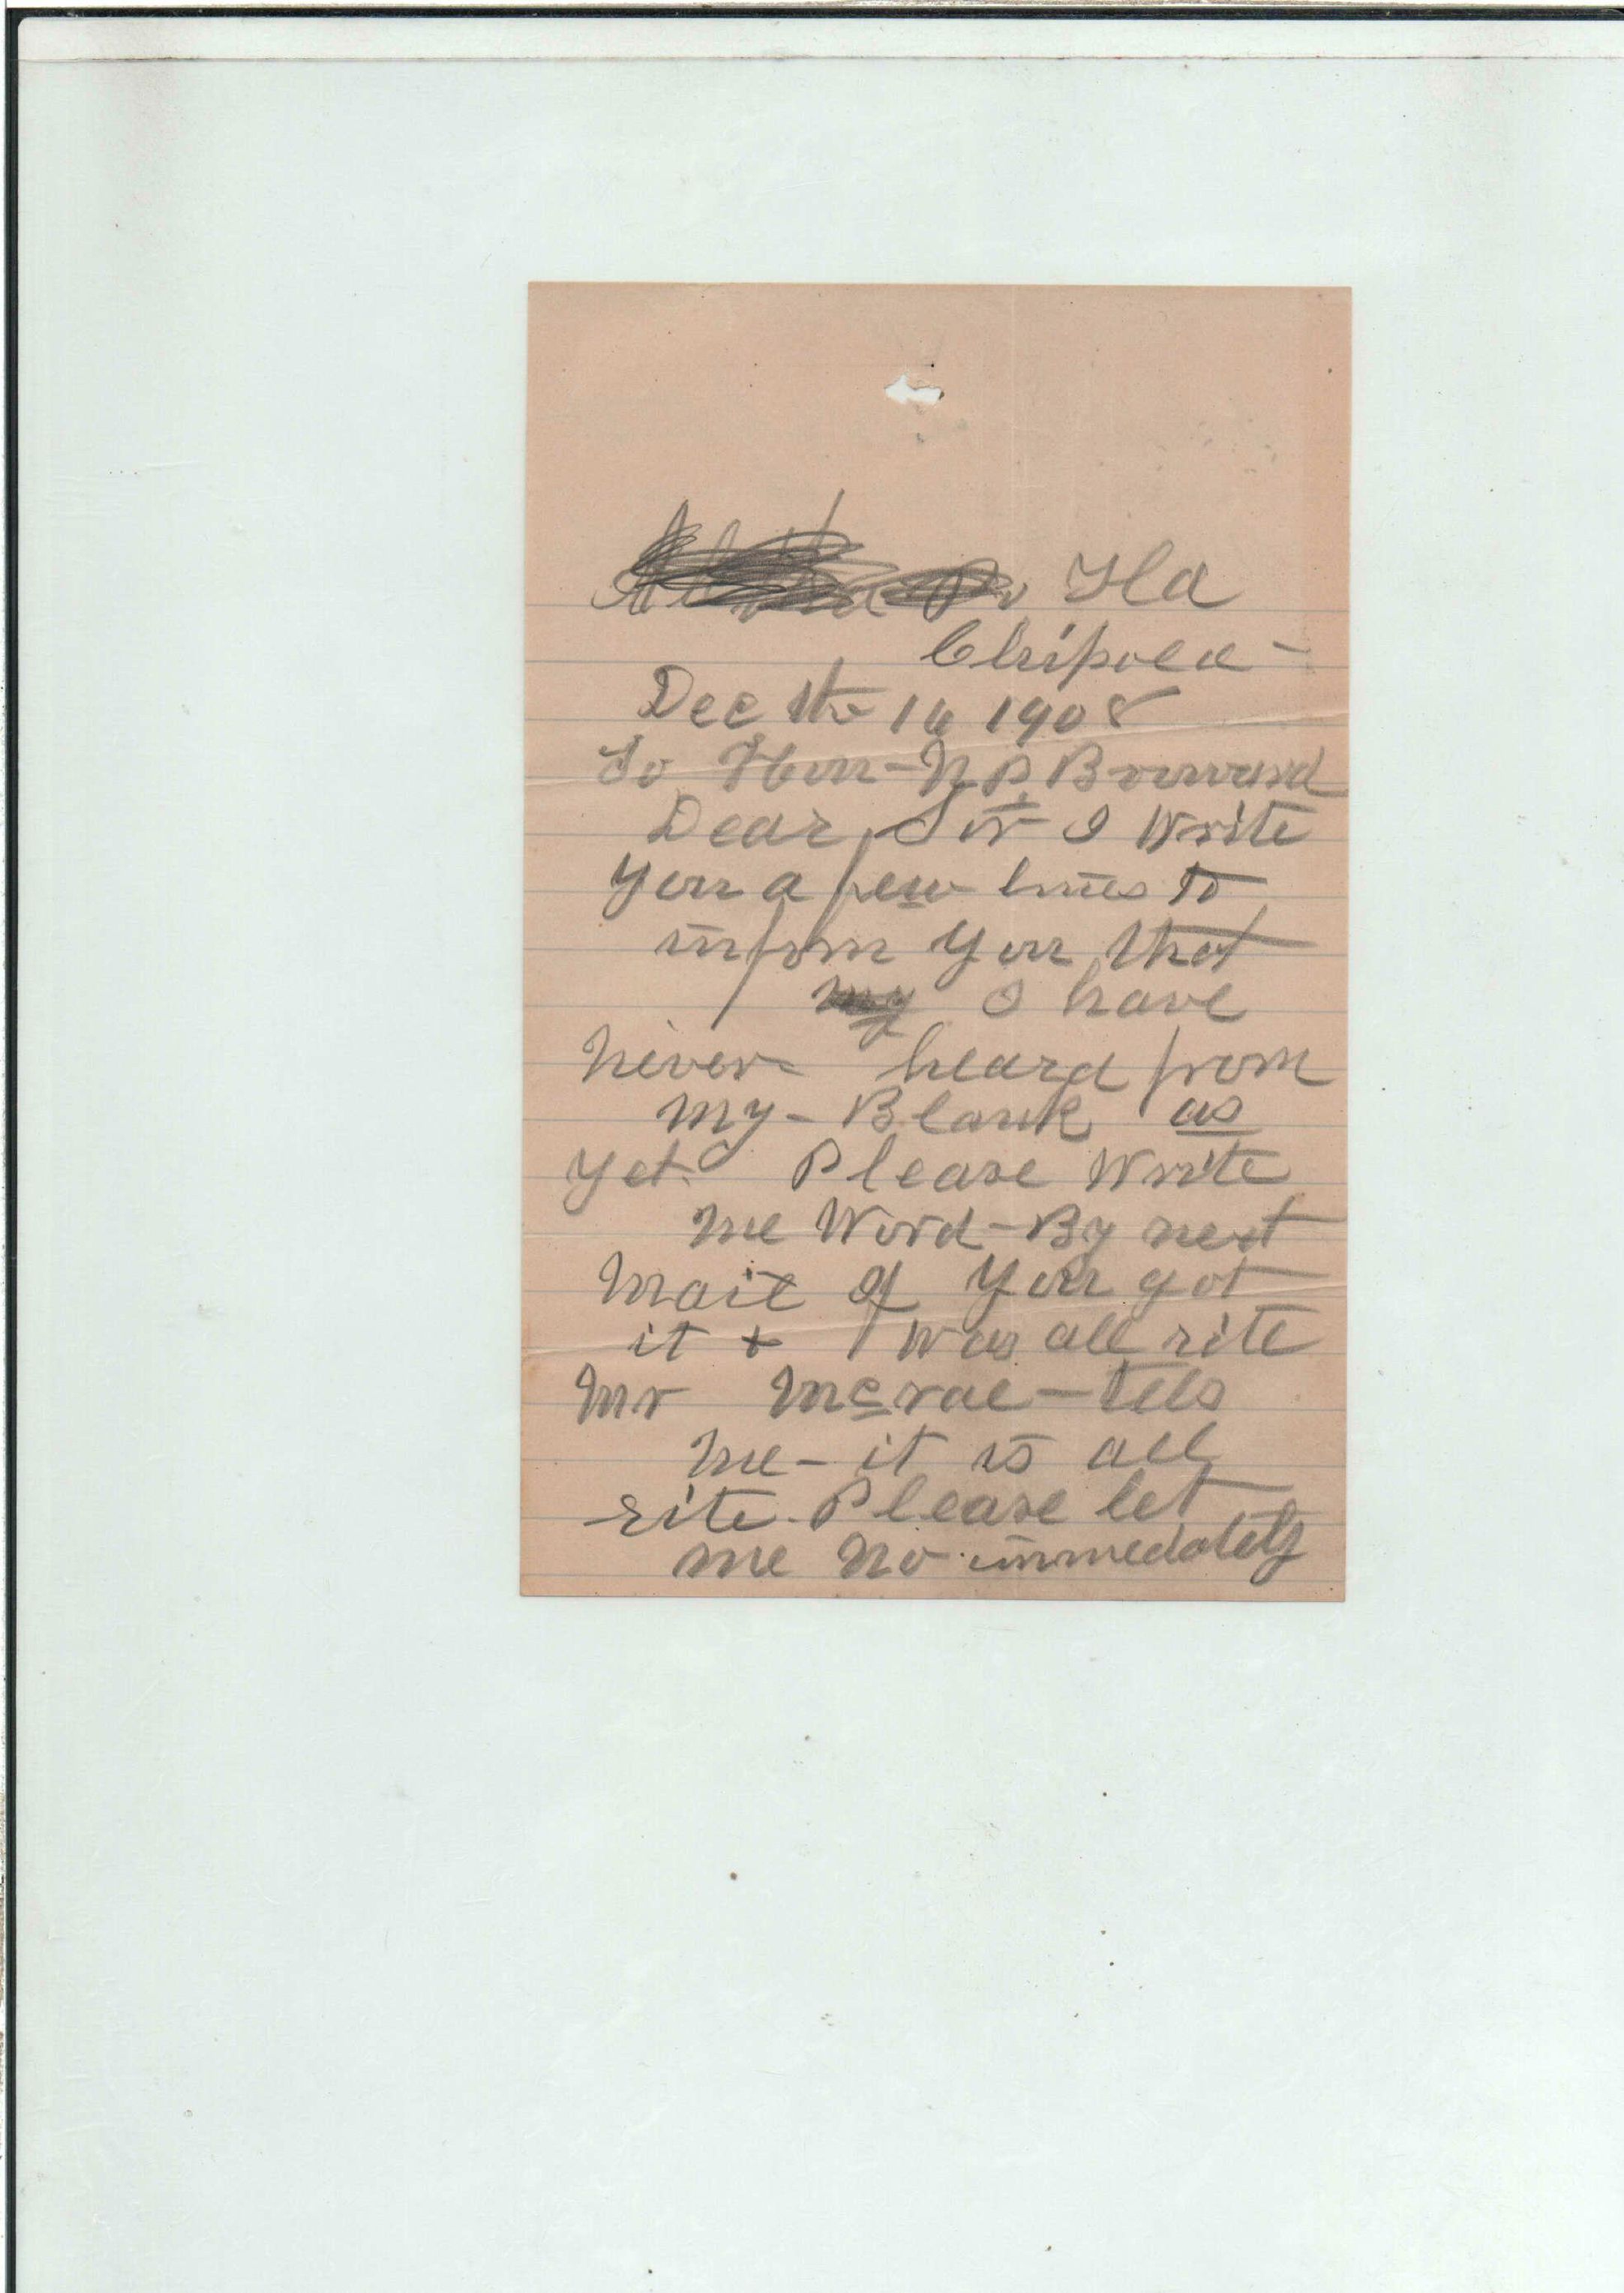 Fla
Chipola -
Dec the 16 1908
To Hon - N B Broward
Dear Sir I Write
You a few lines to
inform You that
my I have
never heard from
my - Blank as
yet. Please Write
me Word - By next
mail if You got
it + if Was all rite
Mr Mcrae - tels
me - it is all
rite. Please let
me no immedately